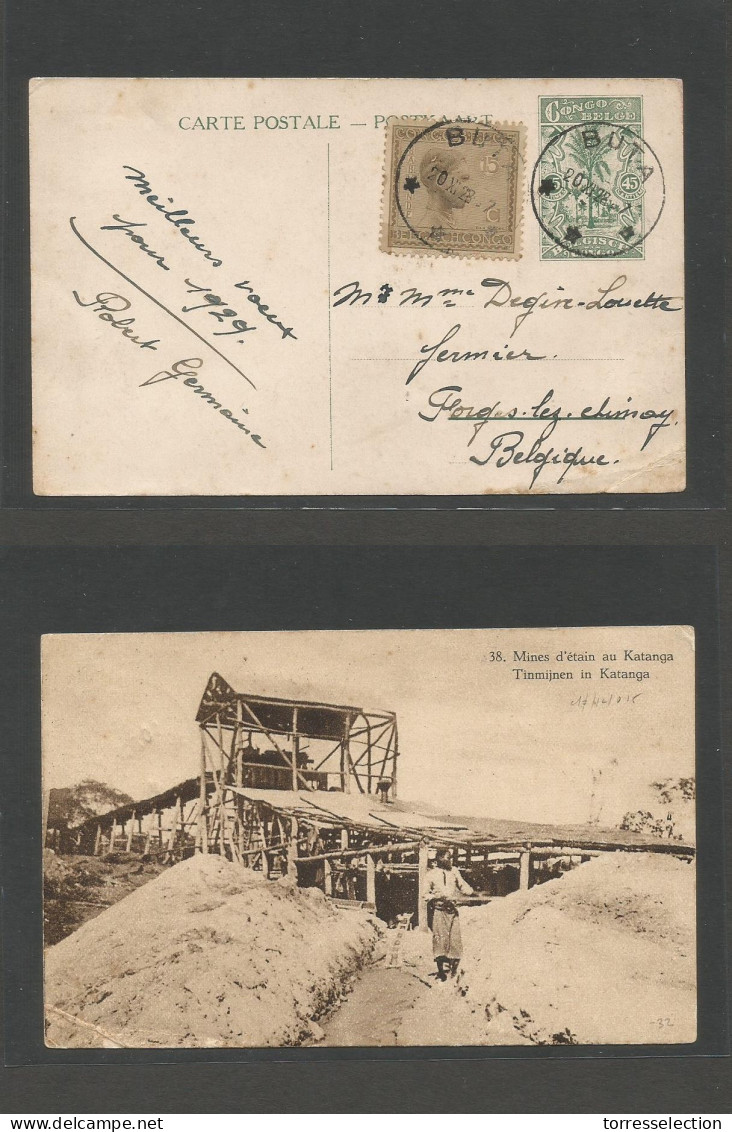 CARTE POSTALE — POSTKAART
CONGO BELGE
15
C
BELGISCH CONGO
BUTA
20 XI 28 - 7
CONGO
BELGE
45
BELGISCH
CONGO
BUTA
20 XI 28 - 7
Meilleurs voeux
pour 1929.
Robert Germaine
Mr Mme Degive-Louette
fermier.
Forges-lez-chimay.
Belgique.
38. Mines d'étain au Katanga
Tinmijnen in Katanga
-32
delcampe.net
torresselection